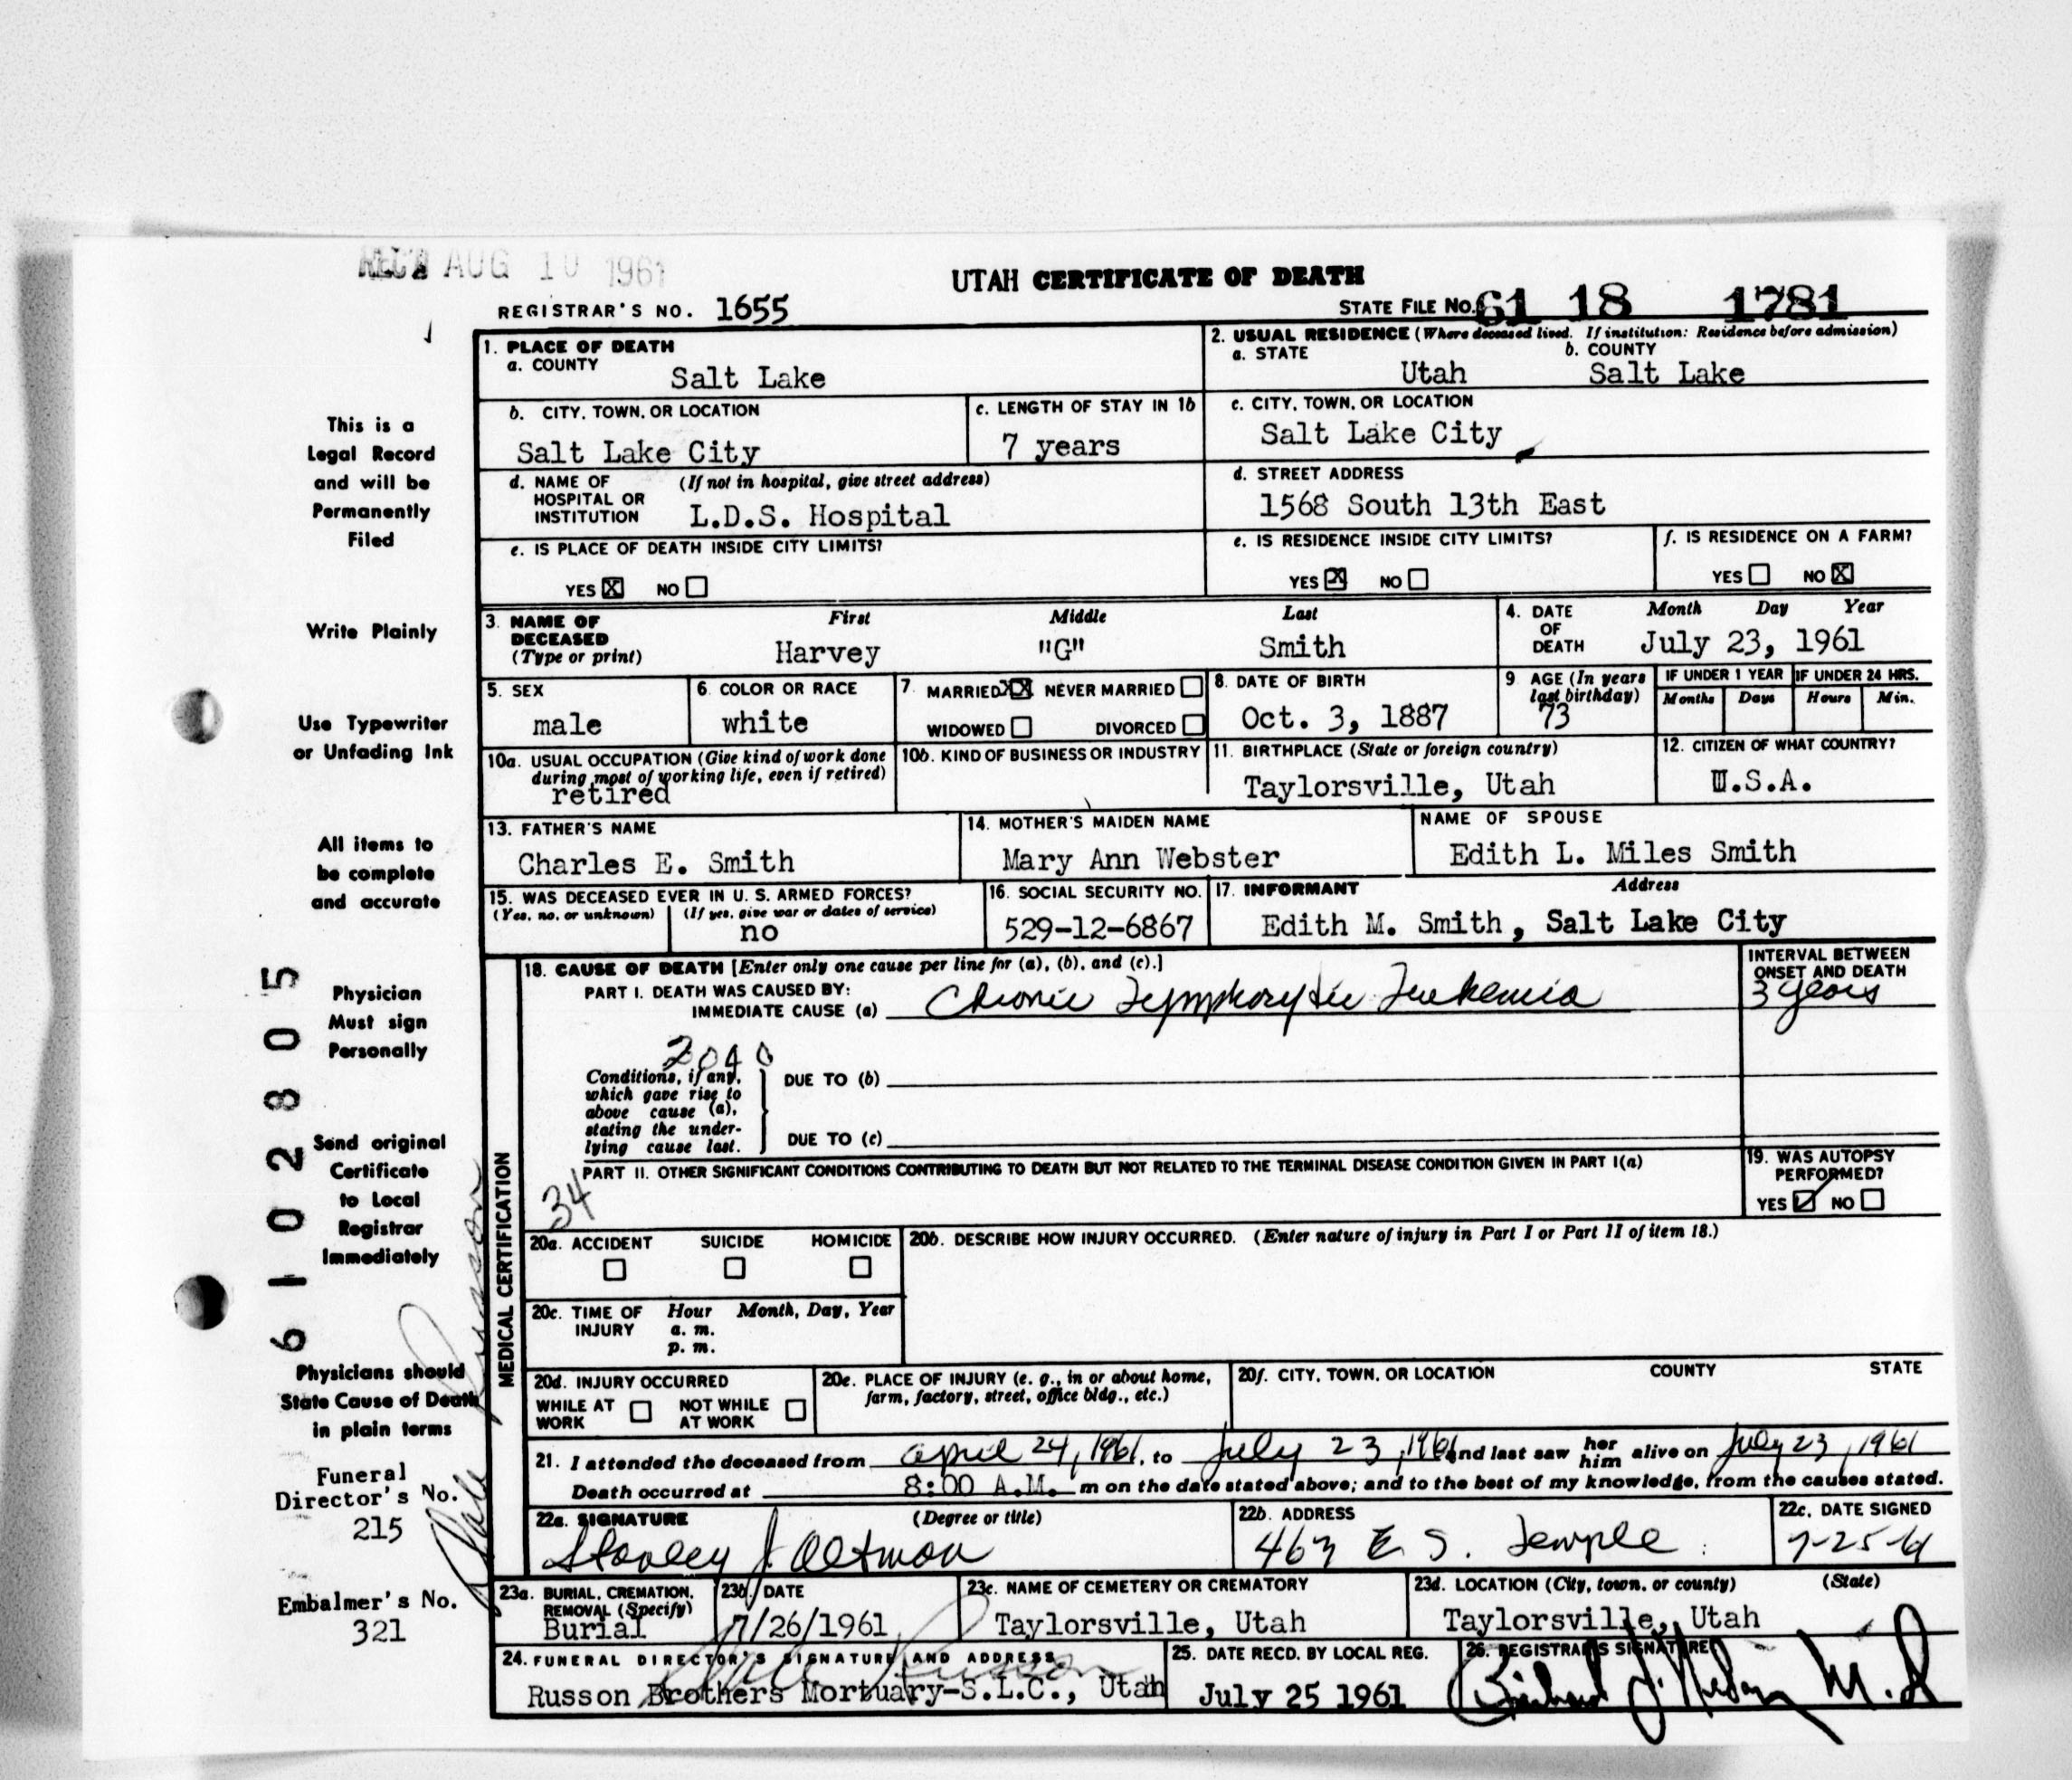 REC'D AUG 10 1961
UTAH CERTIFICATE OF DEATH
REGISTRAR'S NO. 1655
STATE FILE NO. 61 18 1781
1. PLACE OF DEATH
a. COUNTY
Salt Lake
2. USUAL RESIDENCE (Where deceased lived. If institution: Residence before admission)
a. STATE b. COUNTY
Utah Salt Lake
b. CITY, TOWN, OR LOCATION
Salt Lake City
c. LENGTH OF STAY IN 1b
7 years
c. CITY, TOWN, OR LOCATION
Salt Lake City
d. NAME OF (If not in hospital, give street address)
HOSPITAL OR
INSTITUTION L.D.S. Hospital
d. STREET ADDRESS
1568 South 13th East
e. IS PLACE OF DEATH INSIDE CITY LIMITS?
YES X NO
e. IS RESIDENCE INSIDE CITY LIMITS?
YES X NO
f. IS RESIDENCE ON A FARM?
YES NO X
3. NAME OF DECEASED (Type or print)
First Middle Last
Harvey "G" Smith
4. DATE OF DEATH
Month Day Year
July 23, 1961
5. SEX
male
6. COLOR OR RACE
white
7. MARRIED XX NEVER MARRIED
WIDOWED DIVORCED
8. DATE OF BIRTH
Oct. 3, 1887
9 AGE (In years
last birthday)
73
IF UNDER 1 YEAR IF UNDER 24 HRS.
Months Days Hours Min.
10a. USUAL OCCUPATION (Give kind of work done
during most of working life, even if retired)
retired
10b. KIND OF BUSINESS OR INDUSTRY
11. BIRTHPLACE (State or foreign country)
Taylorsville, Utah
12. CITIZEN OF WHAT COUNTRY?
U.S.A.
13. FATHER'S NAME
Charles E. Smith
14. MOTHER'S MAIDEN NAME
Mary Ann Webster
NAME OF SPOUSE
Edith L. Miles Smith
15. WAS DECEASED EVER IN U. S. ARMED FORCES?
(Yes, no, or unknown) (If yes, give war or dates of service)
no
16. SOCIAL SECURITY NO.
529-12-6867
17. INFORMANT Address
Edith M. Smith, Salt Lake City
MEDICAL CERTIFICATION
18. CAUSE OF DEATH [Enter only one cause per line for (a), (b), and (c).]
PART I. DEATH WAS CAUSED BY:
IMMEDIATE CAUSE (a) Chronic Lymphocytic Leukemia
INTERVAL BETWEEN
ONSET AND DEATH
3 years
2040
Conditions, if any,
which gave rise to
above cause (a),
stating the under-
lying cause last.
DUE TO (b)
DUE TO (c)
PART II. OTHER SIGNIFICANT CONDITIONS CONTRIBUTING TO DEATH BUT NOT RELATED TO THE TERMINAL DISEASE CONDITION GIVEN IN PART I(a)
34
19. WAS AUTOPSY
PERFORMED?
YES ✓ NO
20a. ACCIDENT SUICIDE HOMICIDE
20b. DESCRIBE HOW INJURY OCCURRED. (Enter nature of injury in Part I or Part II of item 18.)
20c. TIME OF INJURY
Hour Month, Day, Year
a. m.
p. m.
20d. INJURY OCCURRED
WHILE AT WORK NOT WHILE AT WORK
20e. PLACE OF INJURY (e. g., in or about home,
farm, factory, street, office bldg., etc.)
20f. CITY, TOWN, OR LOCATION COUNTY STATE
21. I attended the deceased from April 24, 1961, to July 23, 1961 and last saw her him alive on July 23, 1961
Death occurred at 8:00 A.M. m on the date stated above; and to the best of my knowledge, from the causes stated.
22a. SIGNATURE (Degree or title)
Stanley J. Altman
22b. ADDRESS
463 E. S. Temple
22c. DATE SIGNED
7-25-61
23a. BURIAL, CREMATION,
REMOVAL (Specify)
Burial
23b. DATE
7/26/1961
23c. NAME OF CEMETERY OR CREMATORY
Taylorsville, Utah
23d. LOCATION (City, town, or county) (State)
Taylorsville, Utah
24. FUNERAL DIRECTOR'S SIGNATURE AND ADDRESS
Dale Russon
Russon Brothers Mortuary-S.L.C., Utah
25. DATE RECD. BY LOCAL REG.
July 25 1961
26. REGISTRAR'S SIGNATURE
This is a
Legal Record
and will be
Permanently
Filed
Write Plainly
Use Typewriter
or Unfading Ink
All items to
be complete
and accurate
Physician
Must sign
Personally
Send original
Certificate
to Local
Registrar
Immediately
Physicians should
State Cause of Death
in plain terms
Funeral
Director's No.
215
Embalmer's No.
321
61 02805
Dale Russon